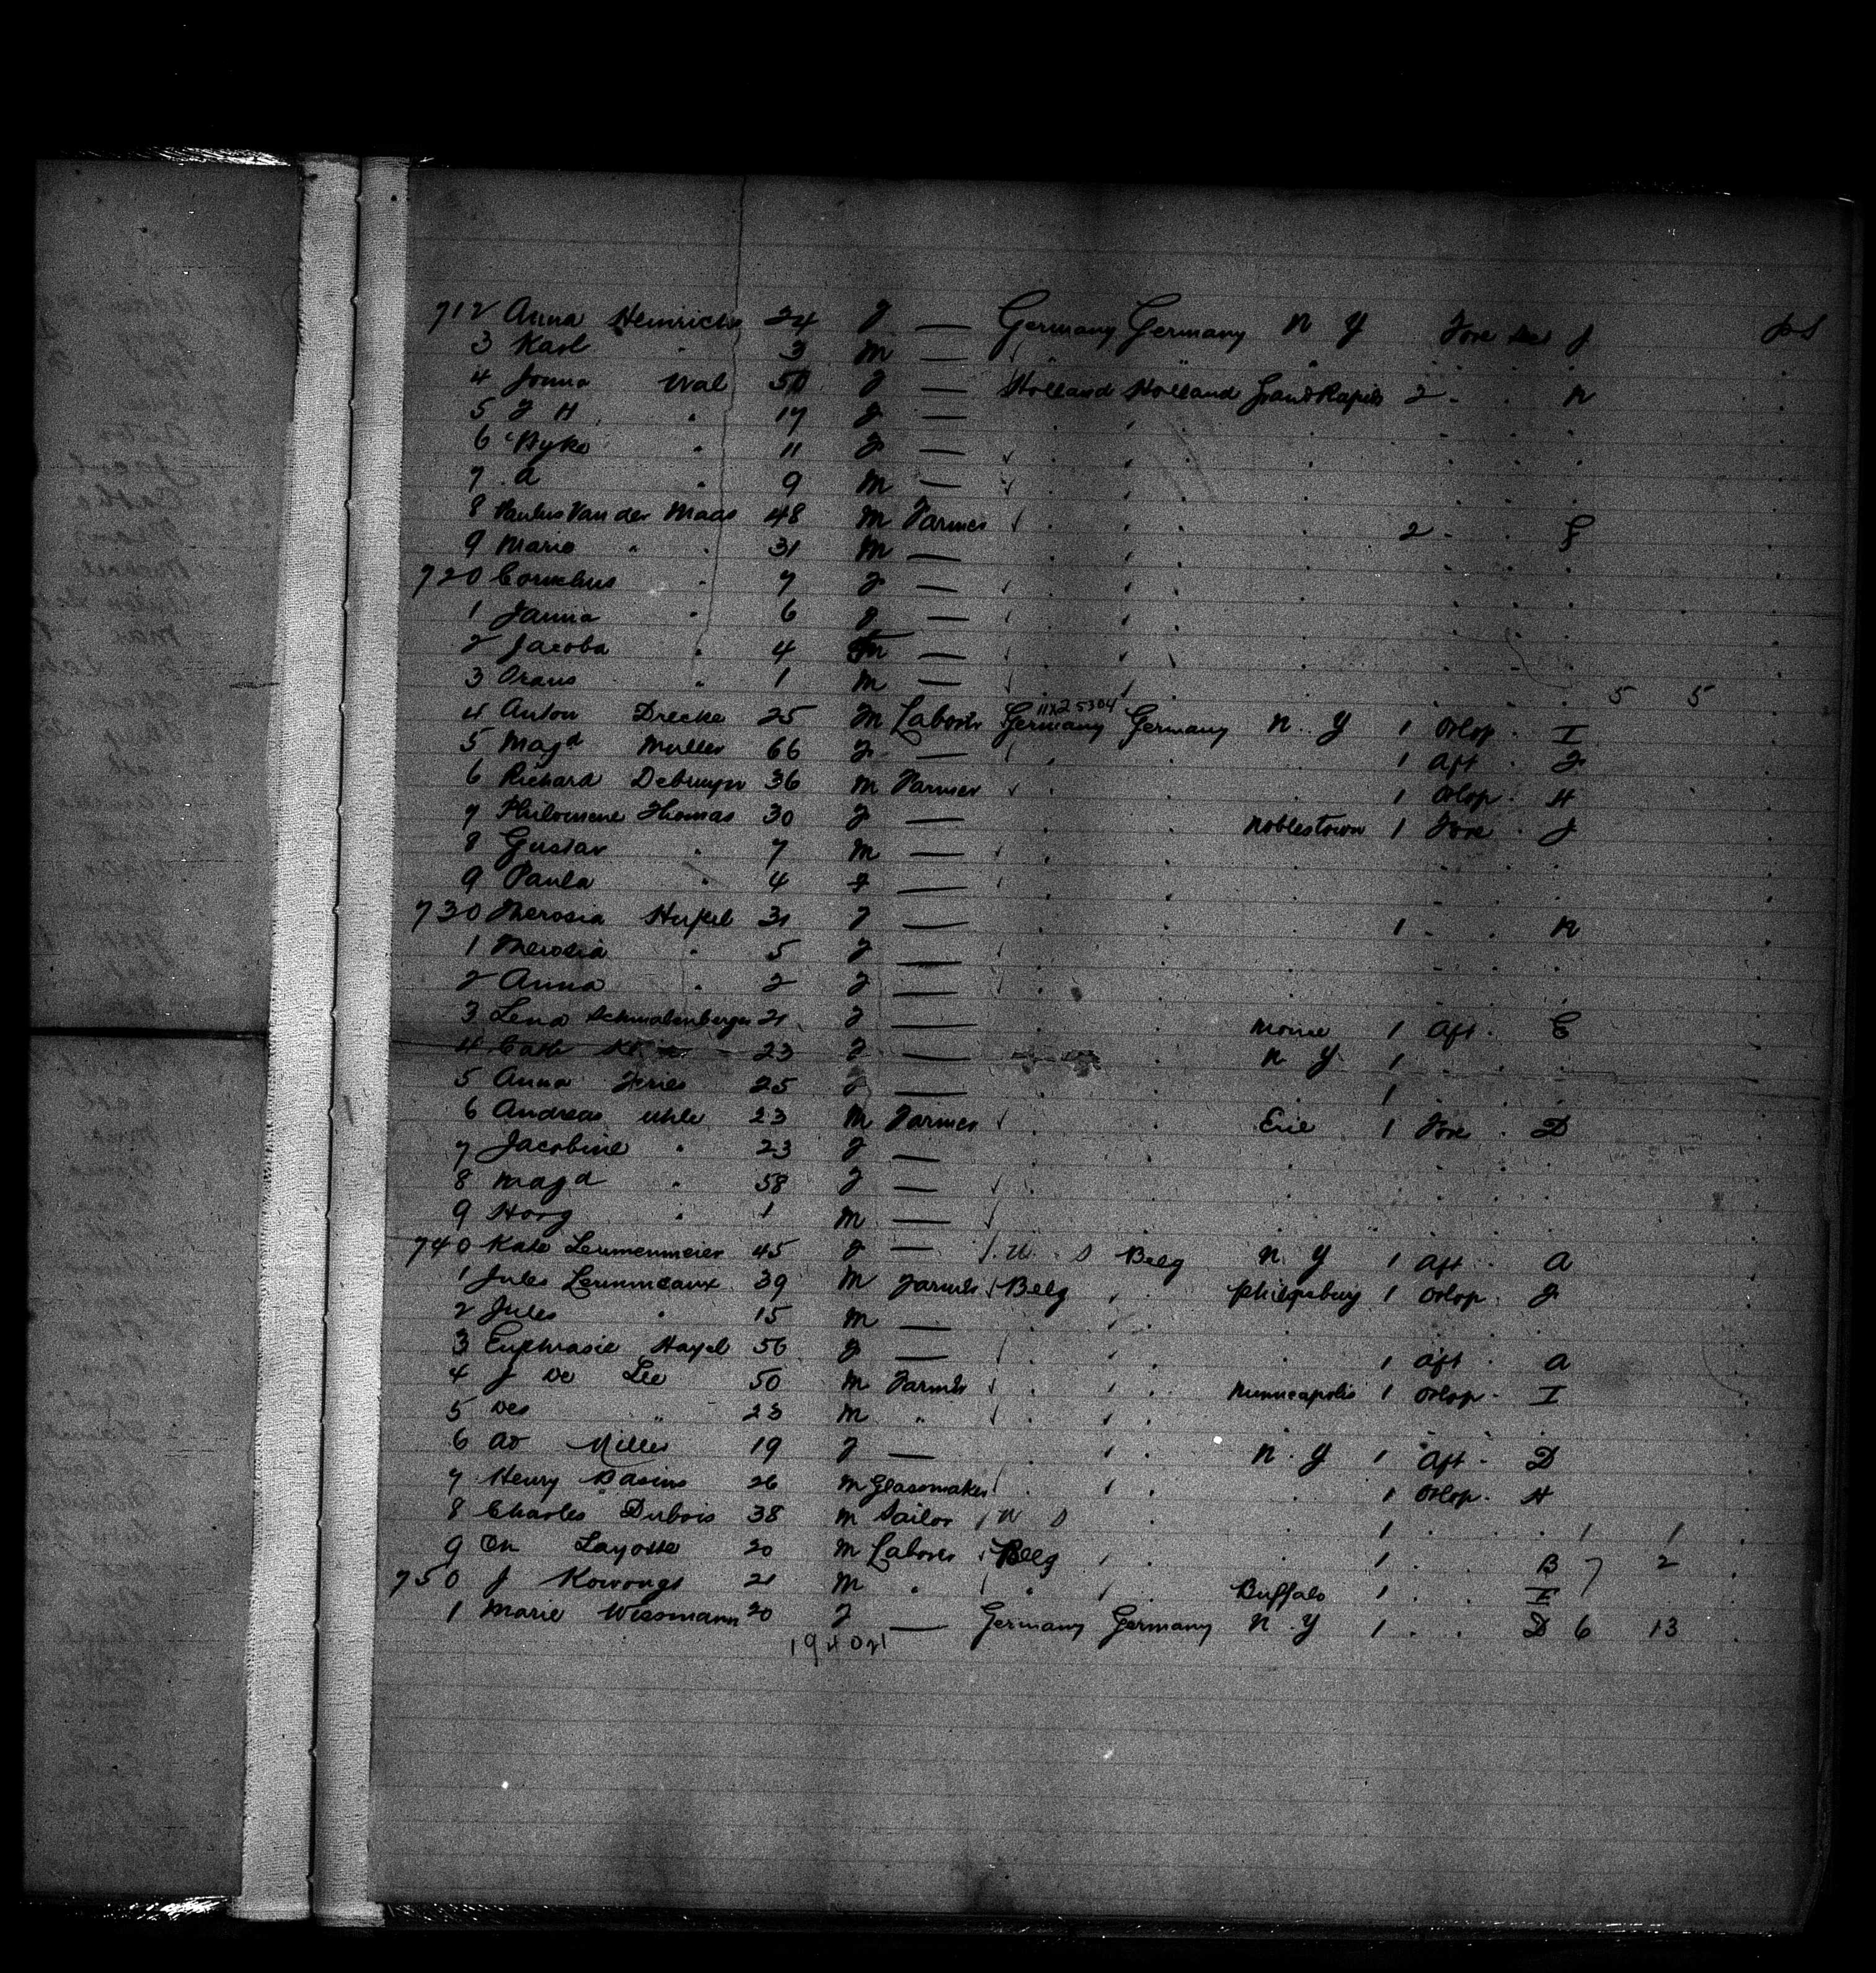 712 Anna Heinrichs 24 F — Germany Germany N Y Fore J
3 Karl " 3 M —
4 Wal 50 F — Holland Holland Grand Rapids 2 " " N
5 F H " 17 F —
6 Dyke " 11 F —
7 A " 9 M —
8 Paulus Van der Maas 48 M Farmer 2 " "
9 Marie " " 31 M —
720 Cornelius " 7 F —
1 Janna " 6 F —
2 Jacoba " 4 —
3 " 1 M — 5 5
11x25304
4 Anton Drecke 25 M Laborer Germany Germany N Y 1 Orlop " I
5 Magd Muller 66 F — 1 Aft " F
6 Richard Debruyn 36 M Farmer 1 Orlop " H
7 Philomene Thomas 30 F — Noblestown 1 Fore " J
8 Gustav " 7 M —
9 Paula " 4 F —
730 Theresia 31 F — 1 " " N
1 Theresia " 5 F —
2 Anna " 2 F —
3 Lena Schmalenberger 21 F — 1 Aft " E
4 Cath 23 F — N Y 1
5 Anna Fries 25 F — 1
6 Andreas Uhle 23 M Farmer Erie 1 Fore " D
7 Jacobine " 23 F —
8 Magd " 58 F —
9 " 1 M —
740 Kate Leumenmeier 45 F — U S Belg N Y 1 Aft " A
1 Jules Leummeaux 39 M Farmer Belg " Philipsburg 1 Orlop " F
2 Jules " 15 M —
3 Euphrasie Hayel 56 F — 1 Aft " A
4 J De Lee 50 M Farmer Minneapolis 1 Orlop " I
5 Des " 23 M "
6 Ad Miller 19 F — N Y 1 Aft " D
7 Henry Basins 26 M Glassmaker 1 Orlop " H
8 Charles Dubois 38 M Sailor U S 1 1 1
9 Layosse 20 M Laborer Belg 1 B 7 2
750 J Kowongs 21 M " Buffalo 1
1 Marie Wissmann 20 F — Germany Germany N Y 1 " " D 6 13